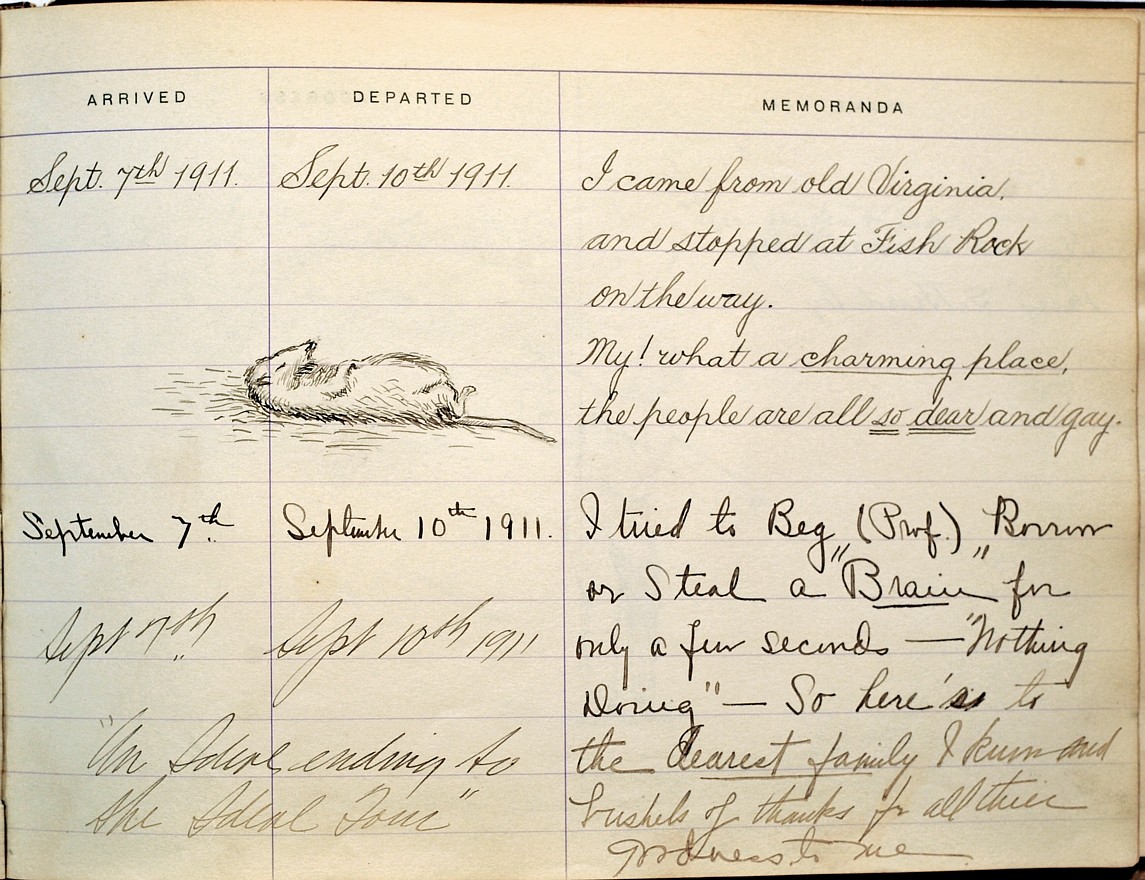 ARRIVED DEPARTED MEMORANDA
Sept. 7th 1911. Sept. 10th 1911.
I came from old Virginia,
and stopped at Fish Rock
on the way.
My! what a charming place,
the people are all so dear and gay.
September 7th. September 10th 1911.
I tried to Beg (Prof.) Borrow
or Steal a "Brain" for
only a few seconds — "Nothing
Doing" — So here's to
the dearest family I know and
bushels of thanks for all their
goodness to me
Sept 7th. Sept 10th 1911
"An Ideal ending to
the Ideal Tour"